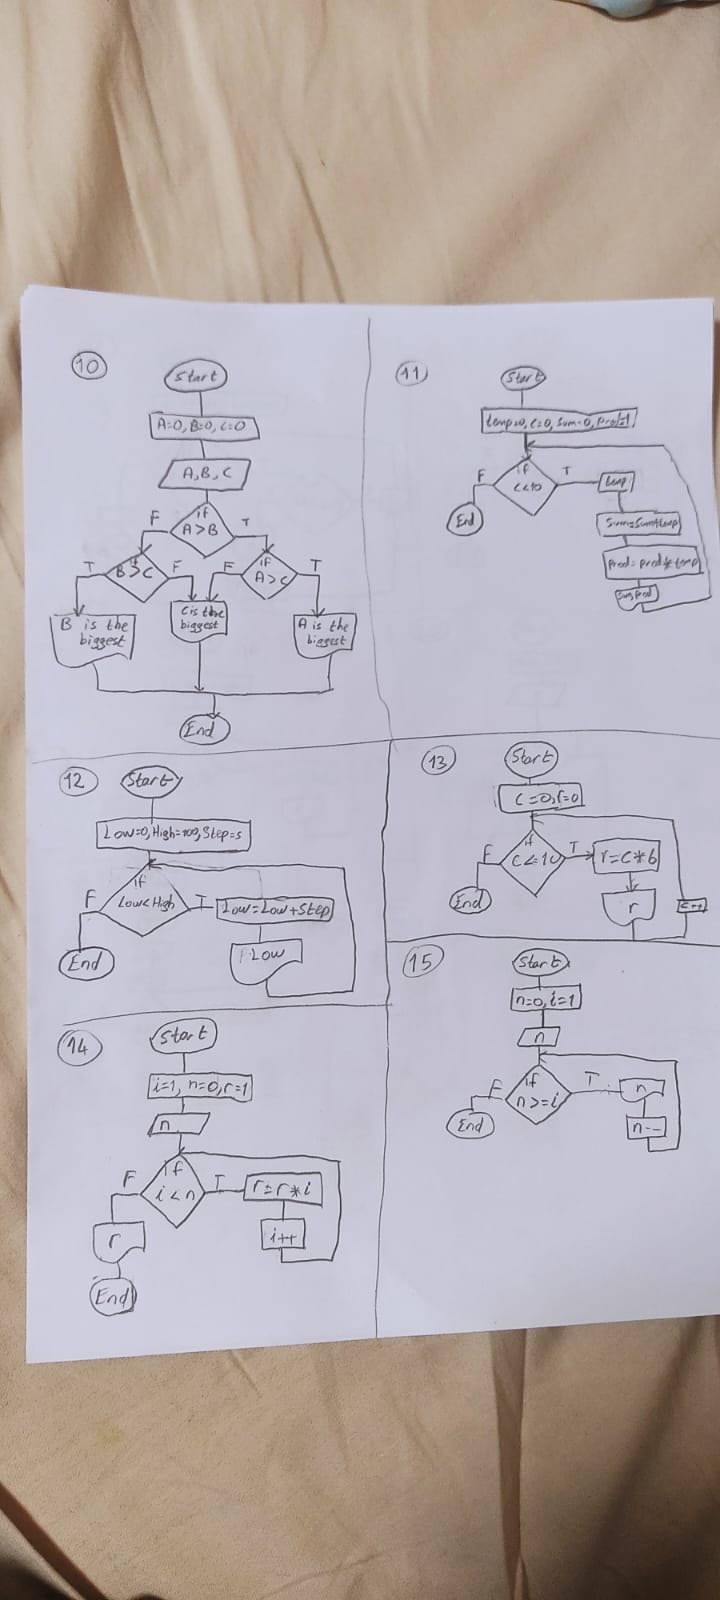 10
Start
A=0, B=0, C=0
A, B, C
if
A>B
F
T
if
B>C
T
F
if
A>C
F
T
B is the
biggest
C is the
biggest
A is the
biggest
End
11
Start
temp=0, C=0, Sum=0, Prod=1
if
F
T
temp
End
Sum=Sum+temp
Prod=Prod*temp
Sum, Prod
12
Start
Low=0, High=100, Step=5
if
Low<High
F
T
Low=Low+Step
Low
End
13
Start
C=0, r=0
if
F
T
r=C*6
r
C++
End
14
Start
i=1, n=0, r=1
n
if
i<n
F
T
r=r*i
i++
r
End
15
Start
n=0, i=1
n
if
n>=i
F
T
n
n--
End